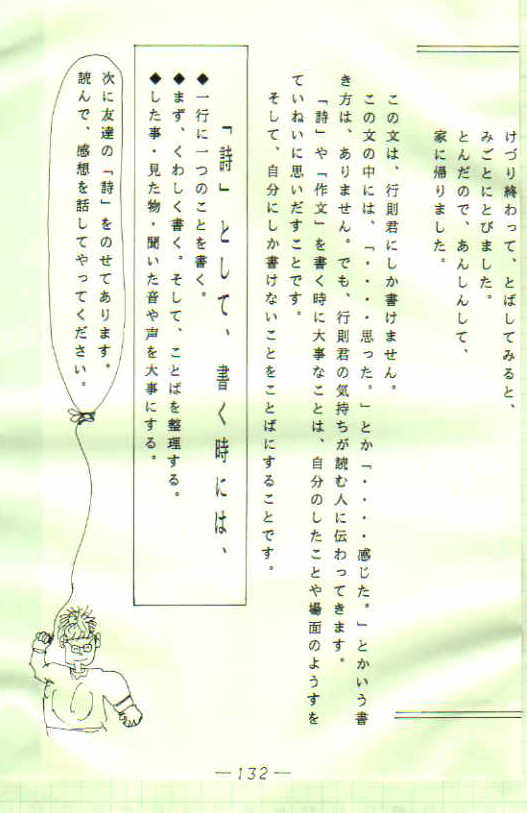 けづり終わって、とばしてみると、
みごとにとびました。
とんだので、あんしんして、
家に帰りました。
この文は、行則君にしか書けません。
この文の中には、「・・・・思った。」とか「・・・・感じた。」とかいう書
き方は、ありません。でも、行則君の気持ちが読む人に伝わってきます。
「詩」や「作文」を書く時に大事なことは、自分のしたことや場面のようすを
ていねいに思いだすことです。
そして、自分にしか書けないことをことばにすることです。
『詩』として、書く時には、
◆一行に一つのことを書く。
◆まず、くわしく書く。そして、ことばを整理する。
◆した事・見た物・聞いた音や声を大事にする。
次に友達の「詩」をのせてあります。
読んで、感想を話してやってください。
—132—